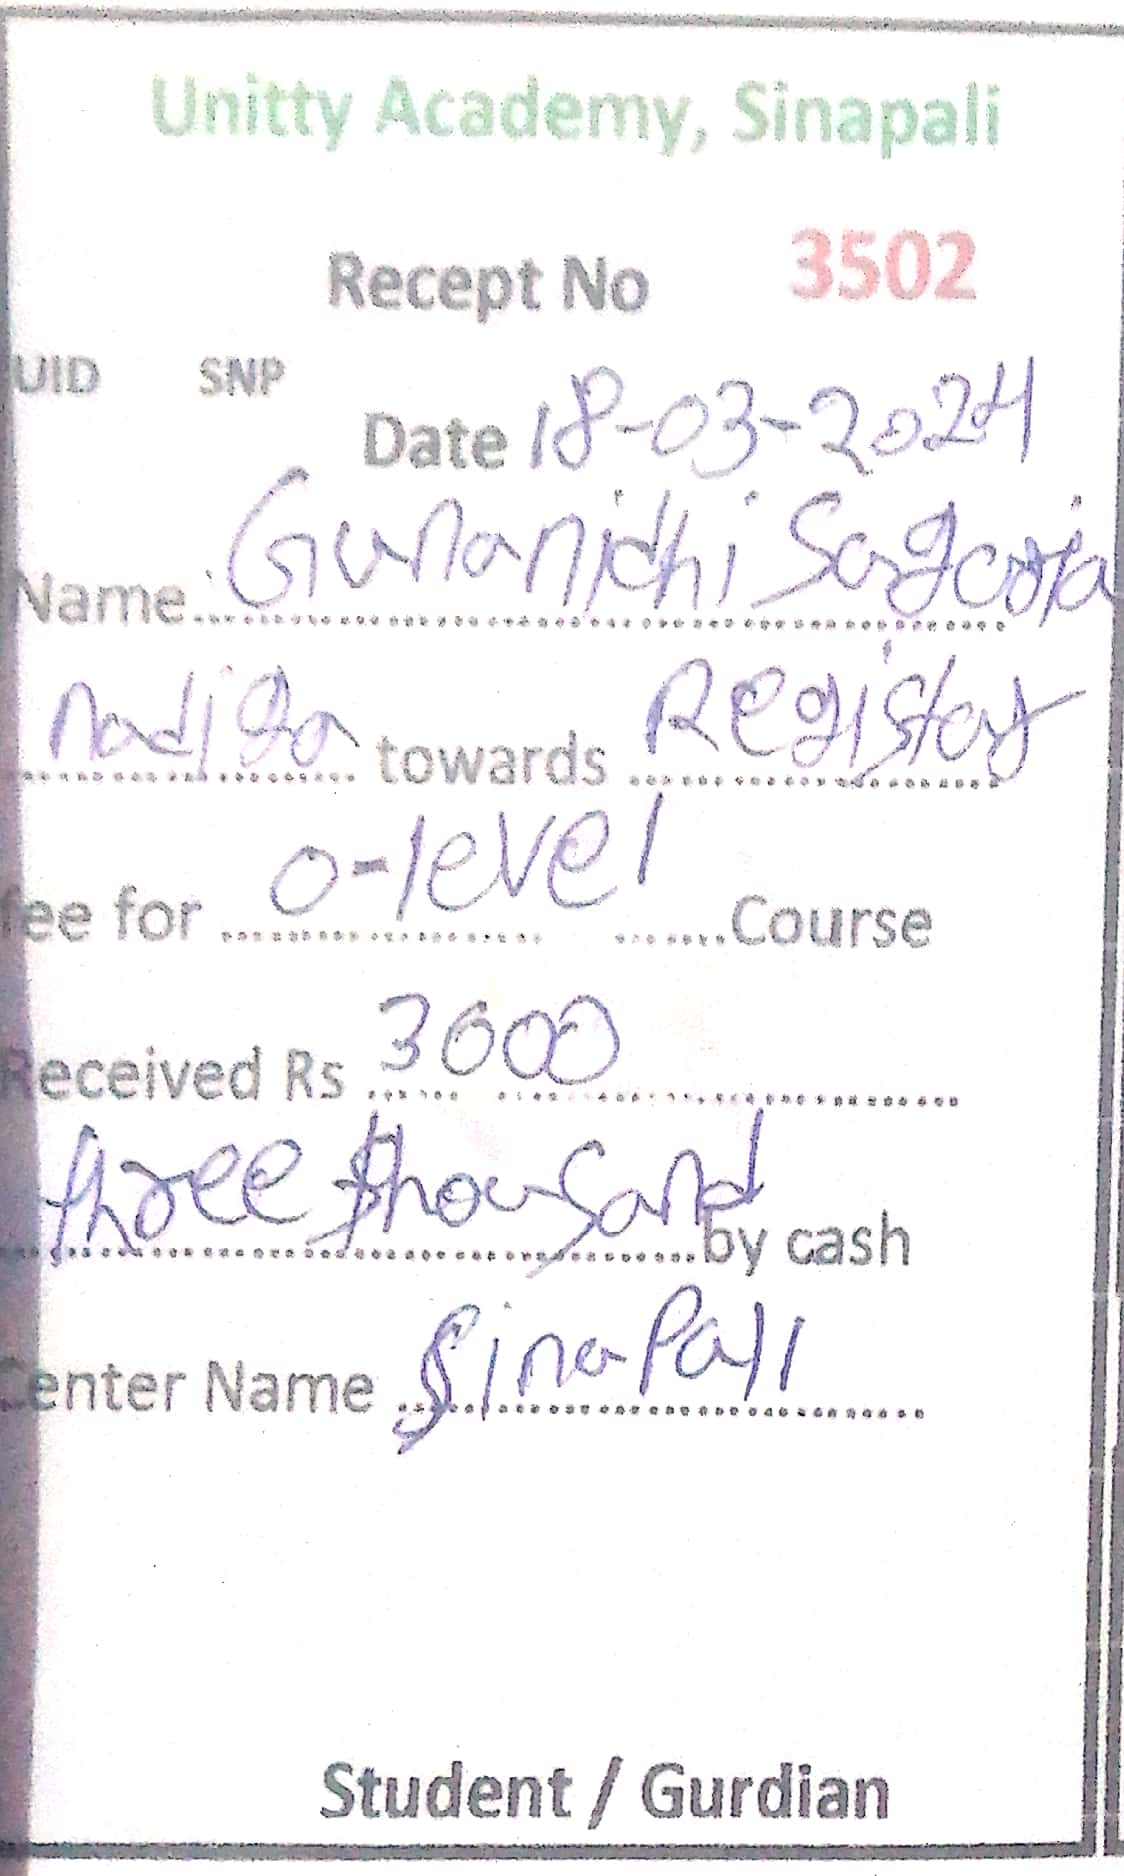 Unitty Academy, Sinapali
Recept No 3502
UID SNP
Date 18-03-2024
Name: Gunanidhi
towards Register
fee for O-level Course
Received Rs 3000
three thousand by cash
Center Name Sinapali
Student / Gurdian